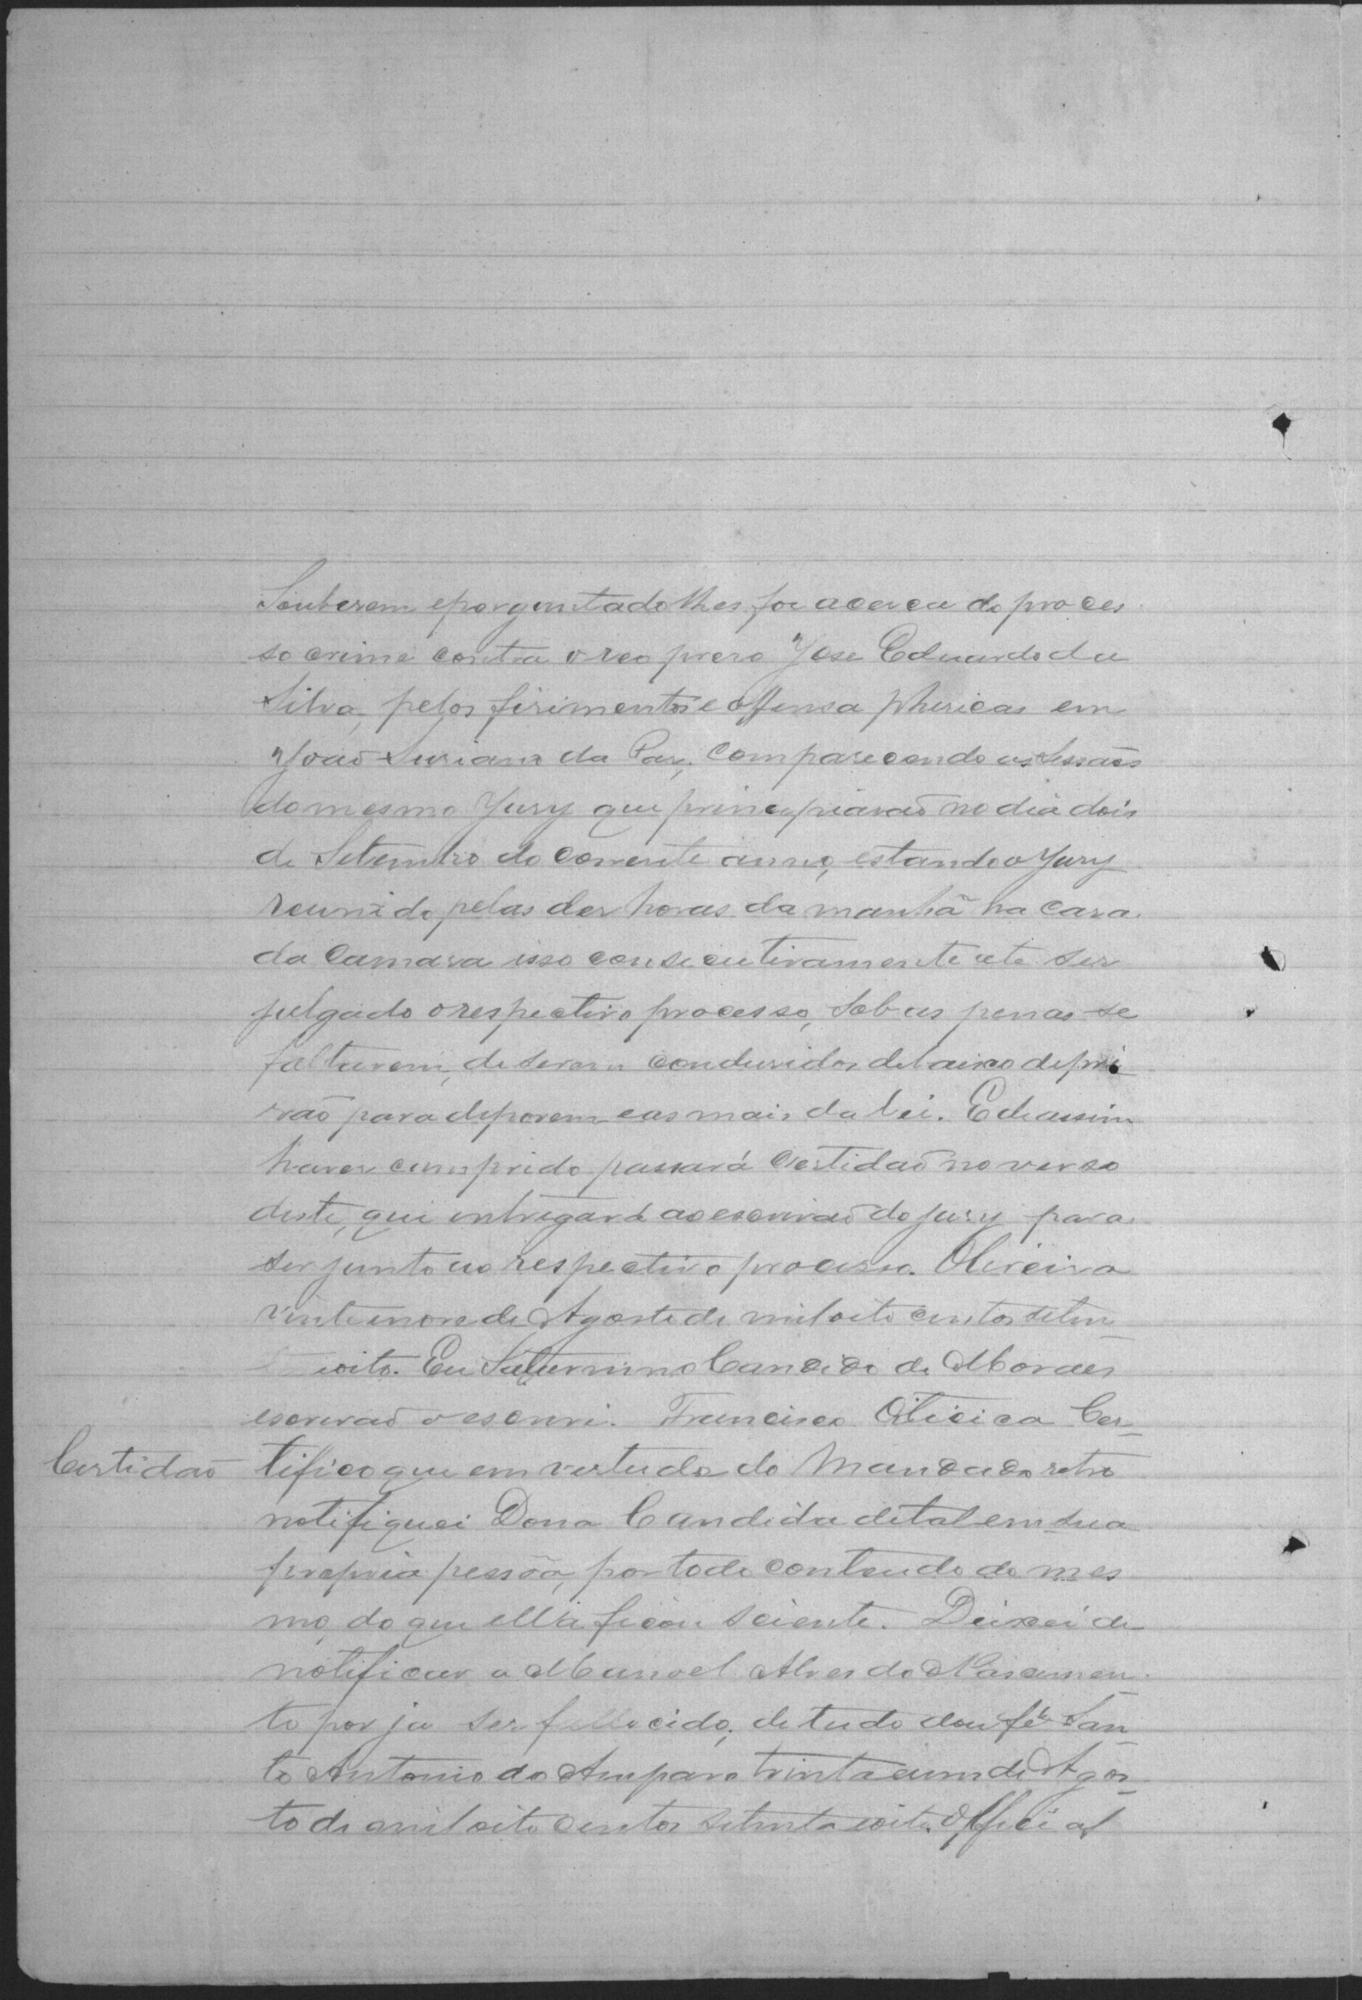 Souberem eporguntado lhes for acerca do proces
so crime contra o reo prezo José Eduardo da
Silva, pelos firimentos e offensa phisicas em
João Suriano da Paz, comparecendo as Sessões
do mesmo Jury que principiarão no dia dois
de Setembro do corrente anno, estando o Jury
reunido pelas dez horas da manhã na caza
da Camara isso consecutivamente até ser
julgado o respectivo processo, sob as penas se
faltarem, de serem conduzidos debaixo de pri
zão para deporem e as mais da lei. E de assim
haver cumprido passará Certidão no verso
deste, que entregará ao escrivão do jury para
ser junto ao respectivo processo. Oliveira
vinte nove de Agosto de mil oito centos seten
ta e oito. Eu Saturnino Candido de Moraes
escrivão o escrevi. Francisco Oiticica Cer_
Certidão tifico que em vertude do Mandado retro
notifiquei Dona Candida de tal em sua
propria pessôa, por todo contendo do mes
mo, do que ella ficou sciente. Deixei de
notificar a Manoel Alves do Nascimen
to por ja ser fallecido; de tudo dou fé. San
to Antonio do Amparo trinta e um de Agos_
to de mil oito centos setenta e oito. Official